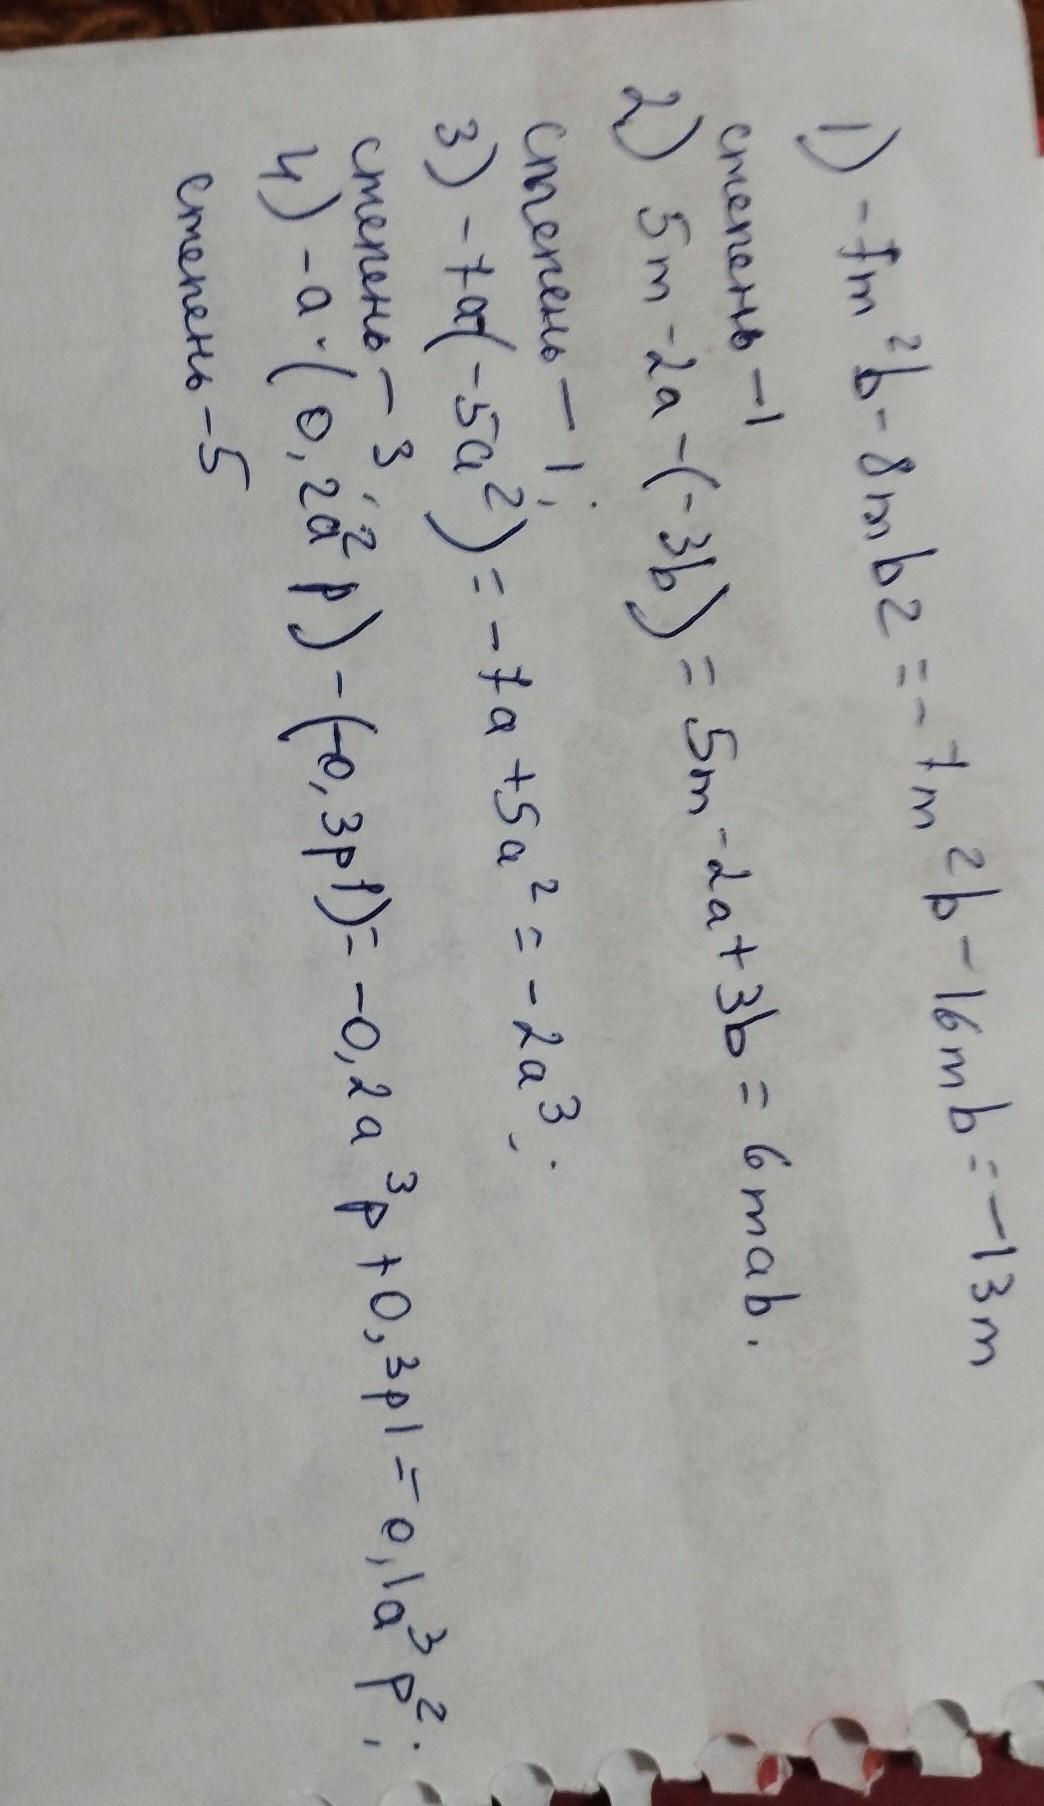 1) -7m²b-8mb2=-7m²b-16mb=-13m
степень-1
2) 5m-2a-(-3b)=5m-2a+3b=6mab.
степень-1;
3) -7a(-5a²)=-7a+5a²=-2a³;
степень-3;
4) -a·(0,2a²p)-(-0,3p1)=-0,2a³p+0,3p1=0,1a³p²;
степень-5